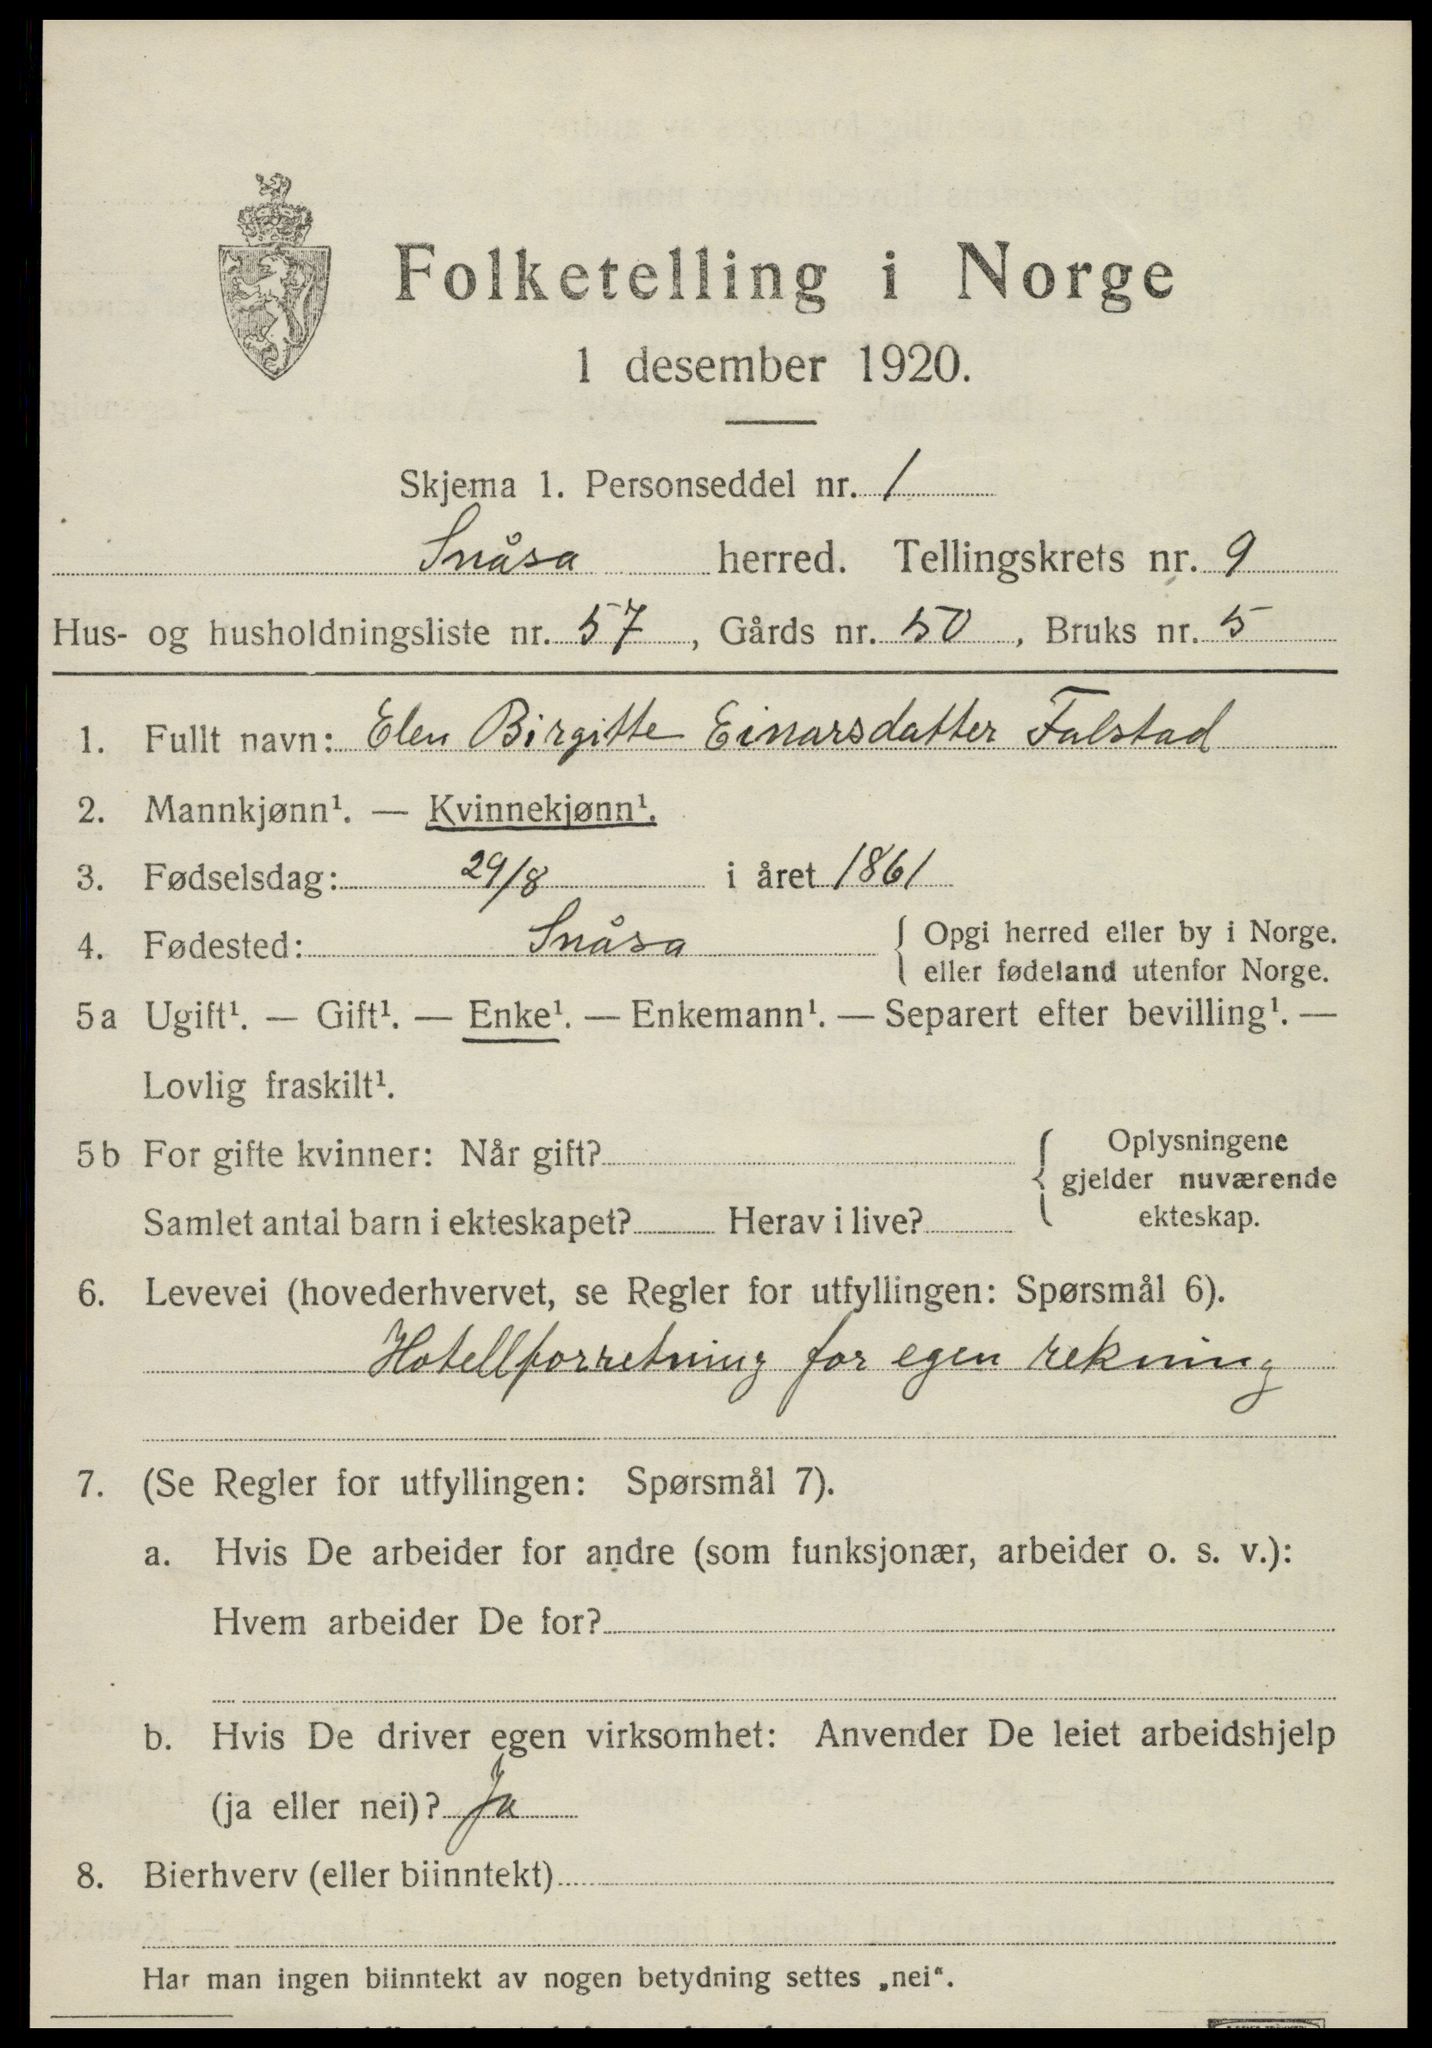 Folketelling i Norge
1 desember 1920.
Skjema 1. Personseddel nr. 1
Snåsa herred. Tellingskrets nr. 9
Hus- og husholdningsliste nr. 57, Gårds nr. 50, Bruks nr. 5
1. Fullt navn: Elen Birgitte Einarsdatter Falstad
2. Mannkjønn¹. — Kvinnekjønn¹.
3. Fødselsdag: 29/8 i året 1861
4. Fødested: Snåsa { Opgi herred eller by i Norge.
eller fødeland utenfor Norge.
5a Ugift¹. — Gift¹. — Enke¹. — Enkemann¹. — Separert efter bevilling¹. —
Lovlig fraskilt¹.
5b For gifte kvinner: Når gift? { Oplysningene
gjelder nuværende
Samlet antal barn i ekteskapet? Herav i live? ekteskap.
6. Levevei (hovederhvervet, se Regler for utfyllingen: Spørsmål 6).
Hotellforretning for egen rekning
7. (Se Regler for utfyllingen: Spørsmål 7).
a. Hvis De arbeider for andre (som funksjonær, arbeider o. s. v.):
Hvem arbeider De for?
b. Hvis De driver egen virksomhet: Anvender De leiet arbeidshjelp
(ja eller nei)? Ja
8. Bierhverv (eller biinntekt)
Har man ingen biinntekt av nogen betydning settes „nei“.